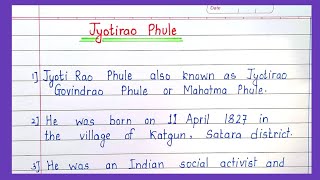 Date
Jyotirao Phule
1] Jyoti Rao Phule also known as Jyotirao
Govindrao Phule or Mahatma Phule.
2] He was born on 11 April 1827 in
the village of Katgun, Satara district.
3] He was an Indian social activist and